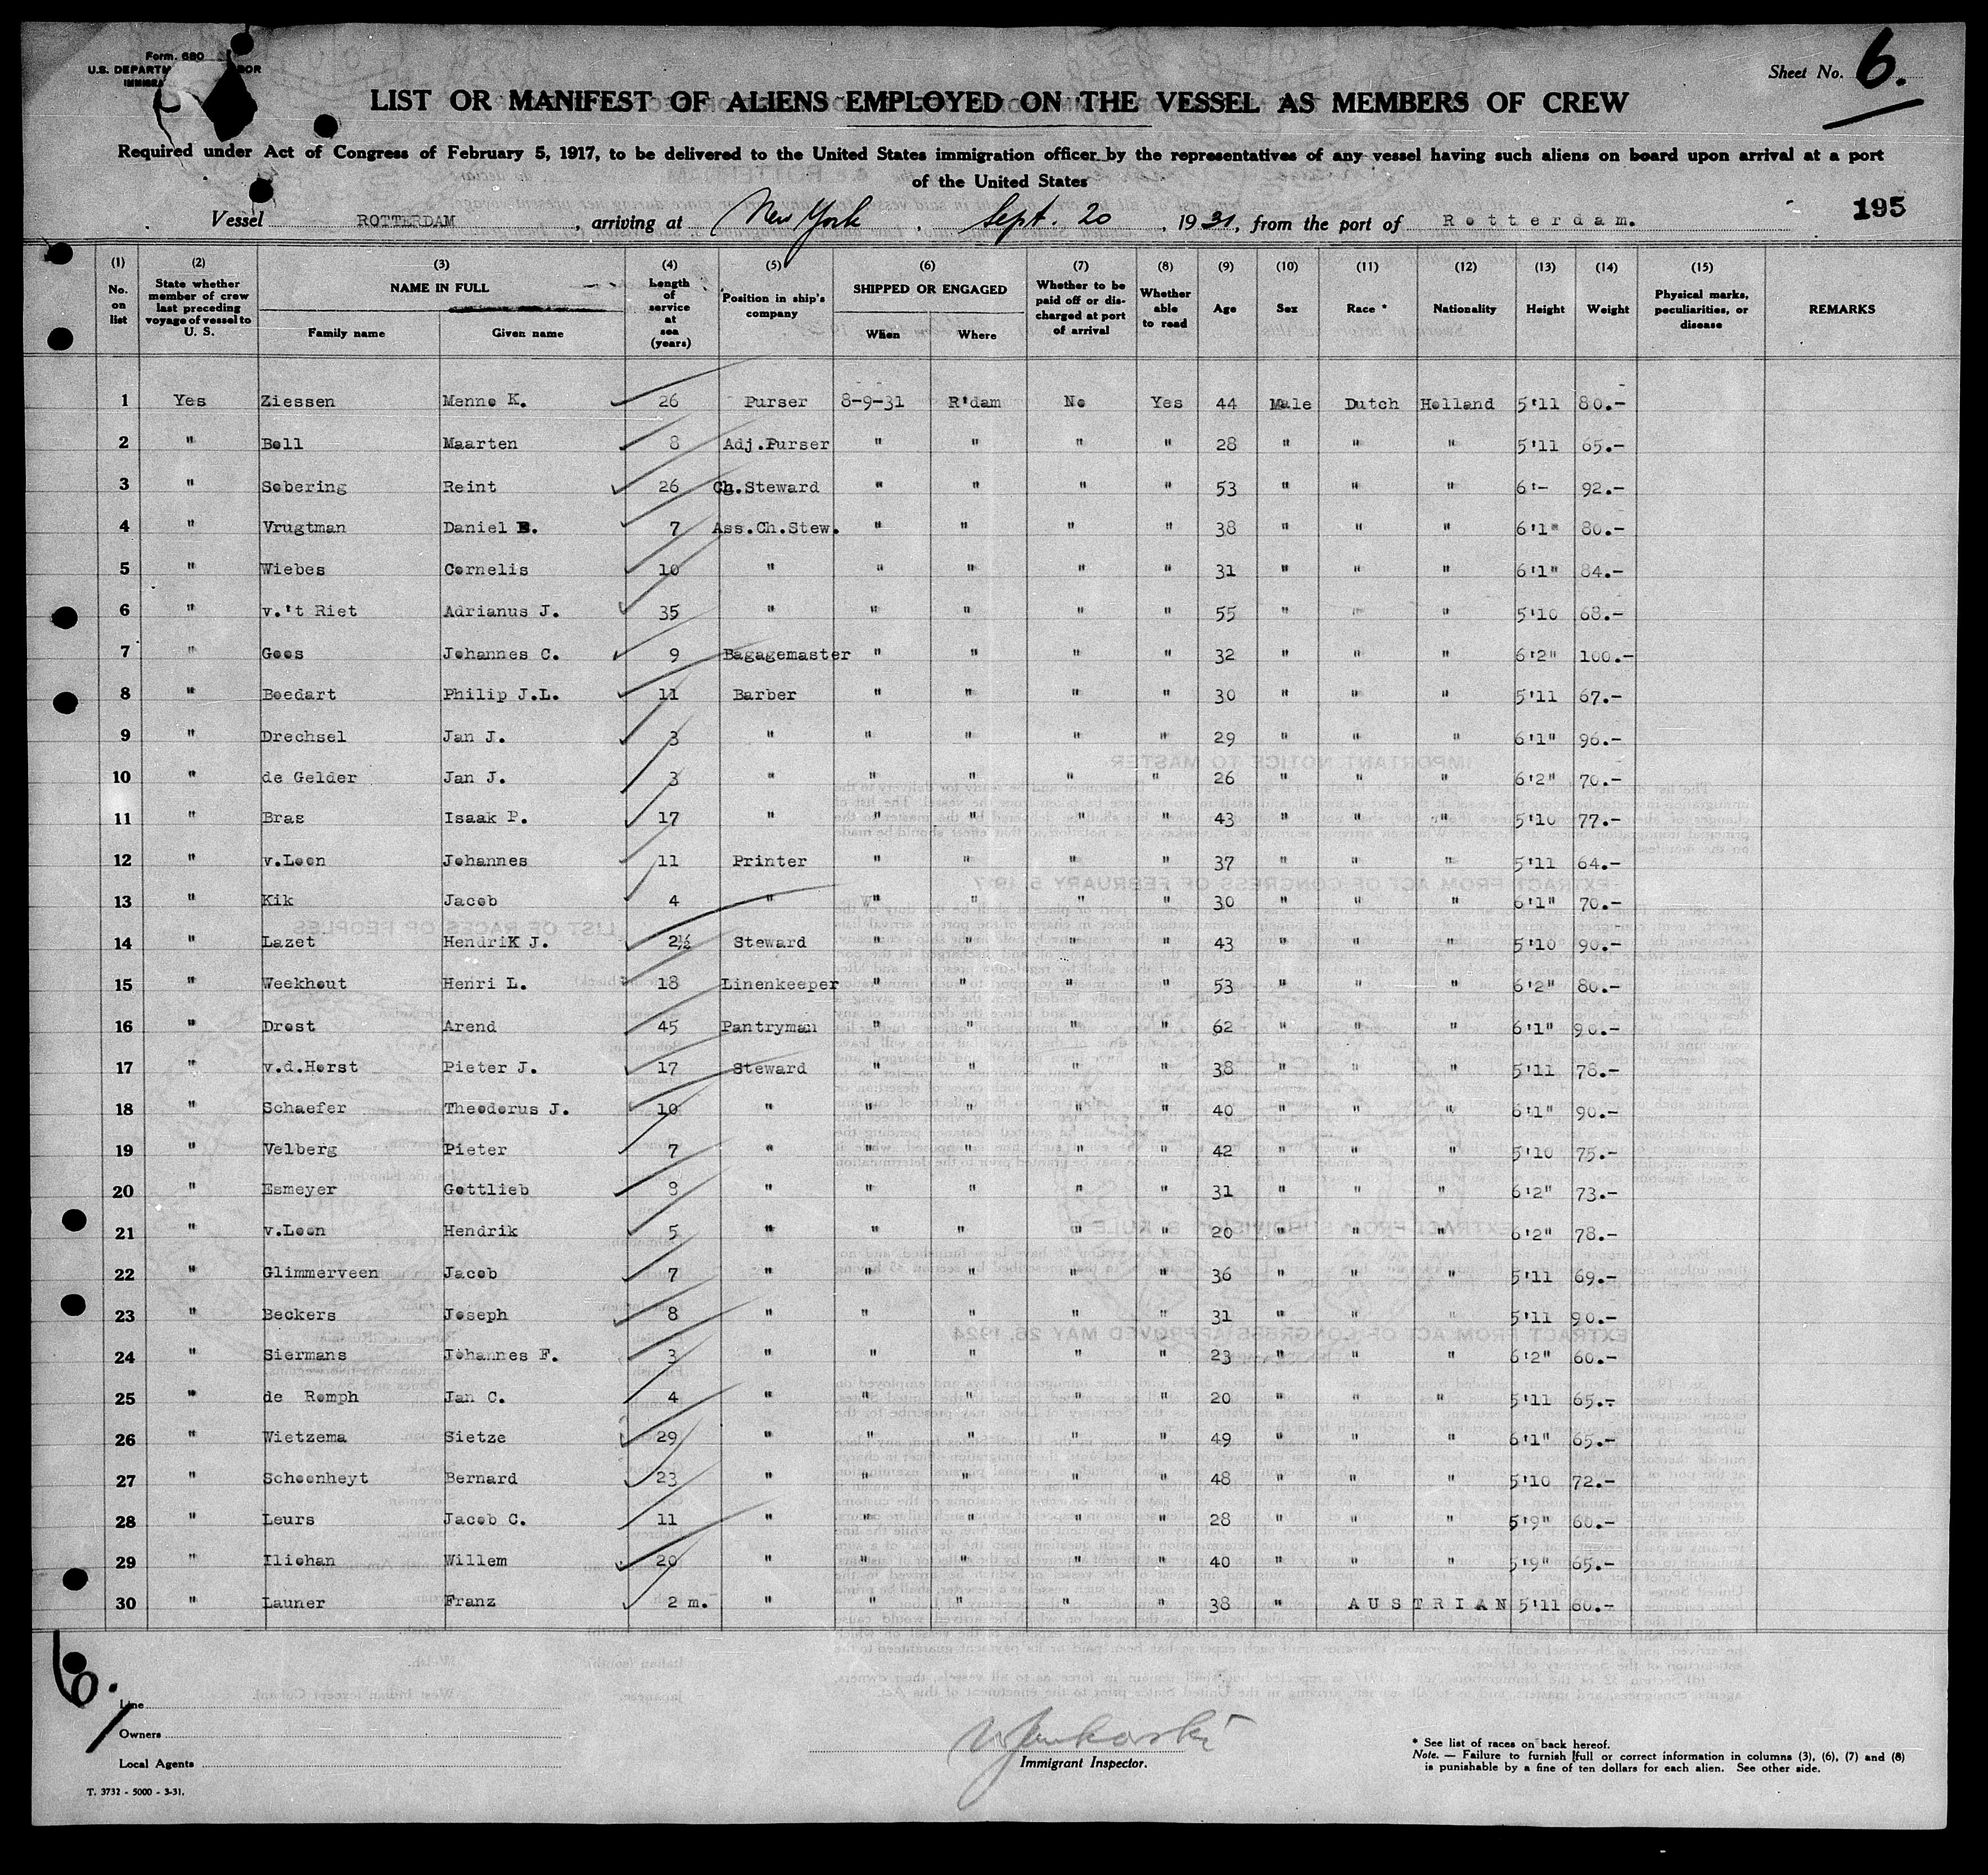 Form. 680
U.S. DEPARTM BOR
IMMIGRA
Sheet No. 6.
LIST OR MANIFEST OF ALIENS EMPLOYED ON THE VESSEL AS MEMBERS OF CREW
Required under Act of Congress of February 5, 1917, to be delivered to the United States immigration officer by the representatives of any vessel having such aliens on board upon arrival at a port
of the United States
195
Vessel ROTTERDAM, arriving at New York, Sept. 20, 1931, from the port of Rotterdam.
(1) (2) (3) (4) (5) (6) (7) (8) (9) (10) (11) (12) (13) (14) (15)
No. on list | State whether member of crew last preceding voyage of vessel to U. S. | NAME IN FULL Family name Given name | Length of service at sea (years) | Position in ship's company | SHIPPED OR ENGAGED When Where | Whether to be paid off or discharged at port of arrival | Whether able to read | Age | Sex | Race * | Nationality | Height | Weight | Physical marks, peculiarities, or disease | REMARKS
1 Yes Ziessen Menno K. 26 Purser 8-9-31 R'dam No Yes 44 Male Dutch Holland 5'11 80.-
2 " Boll Maarten 8 Adj.Purser " " " " 28 " " " 5'11 65.-
3 " Sebering Reint 26 Ch.Steward " " " " 53 " " " 6'- 92.-
4 " Vrugtman Daniel B. 7 Ass.Ch.Stew. " " " " 38 " " " 6'1" 80.-
5 " Wiebes Cornelis 10 " " " " " 31 " " " 6'1" 84.-
6 " v.'t Riet Adrianus J. 35 " " " " " 55 " " " 5'10 68.-
7 " Goos Johannes C. 9 Bagagemaster " " " " 32 " " " 6'2" 100.-
8 " Boedart Philip J.L. 11 Barber " " " " 30 " " " 5'11 67.-
9 " Drechsel Jan J. 3 " " " " " 29 " " " 6'1" 96.-
10 " de Gelder Jan J. 3 " " " " " 26 " " " 6'2" 70.-
11 " Bras Isaak P. 17 " " " " " 43 " " " 5'10 77.-
12 " v.Loon Johannes 11 Printer " " " " 37 " " " 5'11 64.-
13 " Kik Jacob 4 " " " " " 30 " " " 6'1" 70.-
14 " Lazet HendriK J. 2½ Steward " " " " 43 " " " 5'10 90.-
15 " Weekhout Henri L. 18 Linenkeeper " " " " 53 " " " 6'2" 80.-
16 " Drost Arend 45 Pantryman " " " " 62 " " " 6'1" 90.-
17 " v.d.Horst Pieter J. 17 Steward " " " " 38 " " " 5'11 78.-
18 " Schaefer Theodorus J. 10 " " " " " 40 " " " 6'1" 90.-
19 " Velberg Pieter 7 " " " " " 42 " " " 5'10 75.-
20 " Esmeyer Gottlieb 8 " " " " " 31 " " " 6'2" 73.-
21 " v.Loon Hendrik 5 " " " " " 20 " " " 6'2" 78.-
22 " Glimmerveen Jacob 7 " " " " " 36 " " " 5'11 69.-
23 " Beckers Joseph 8 " " " " " 31 " " " 5'11 90.-
24 " Siermans Johannes F. 3 " " " " " 23 " " " 6'2" 60.-
25 " de Romph Jan C. 4 " " " " " 20 " " " 5'11 65.-
26 " Wietzema Sietze 29 " " " " " 49 " " " 6'1" 65.-
27 " Schoonheyt Bernard 23 " " " " " 48 " " " 5'10 72.-
28 " Leurs Jacob C. 11 " " " " " 28 " " " 5'9" 60.-
29 " Iliohan Willem 20 " " " " " 40 " " " 5'9" 65.-
30 " Launer Franz 2 m. " " " " " 38 " AUSTRIAN 5'11 60.-
6.
Line
Owners
Local Agents
T. 3732 - 5000 - 3-31.
Immigrant Inspector.
* See list of races on back hereof.
Note. — Failure to furnish full or correct information in columns (3), (6), (7) and (8)
is punishable by a fine of ten dollars for each alien. See other side.